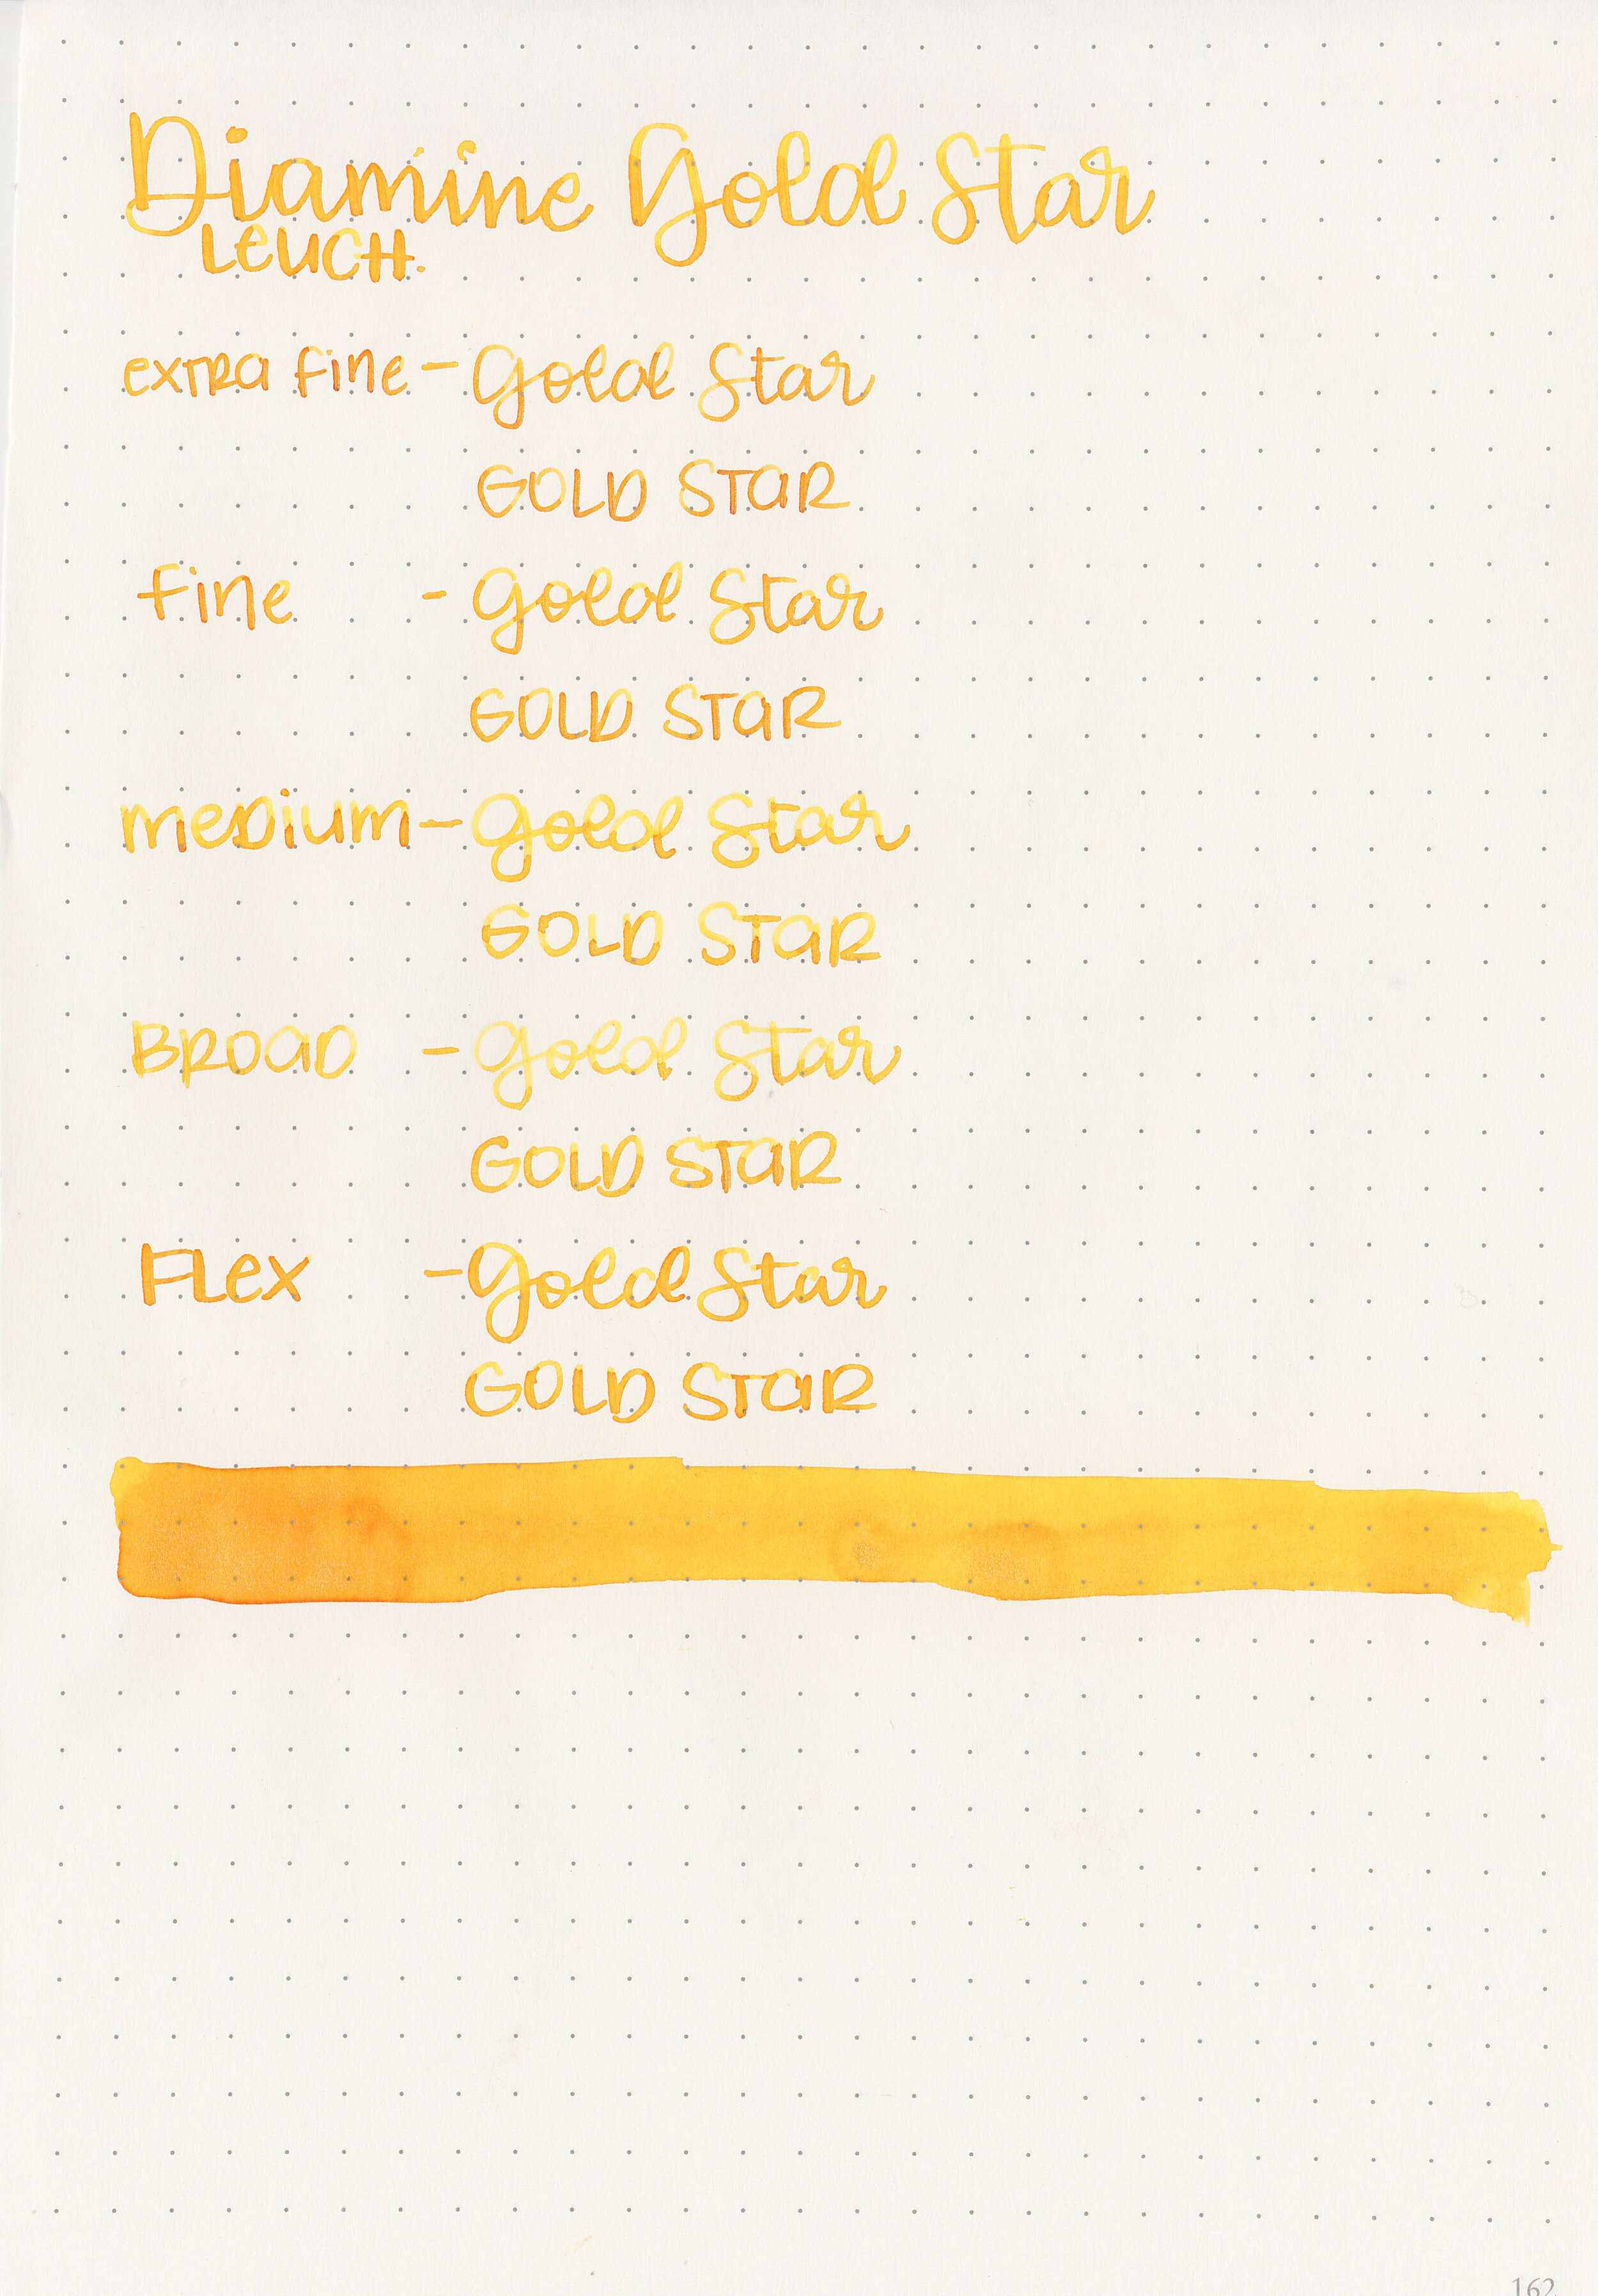 Diamine Gold Star
LEUCH.
extra fine - Gold Star
GOLD STAR
fine - Gold Star
GOLD STAR
medium - Gold Star
GOLD STAR
BROAD - Gold Star
GOLD STAR
Flex - Gold Star
GOLD STAR
162